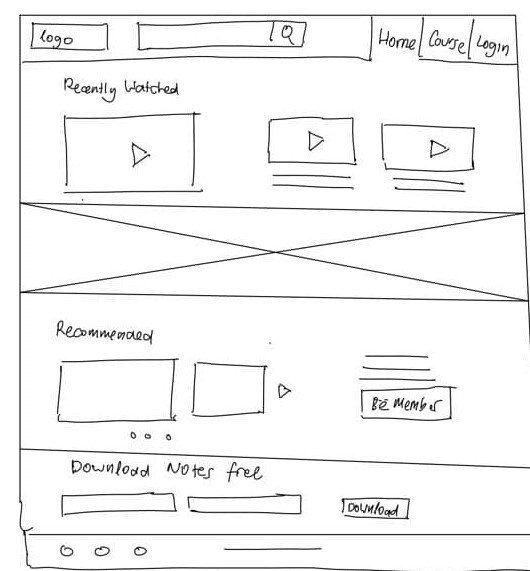 logo
Home Course Login
Recently Watched
Recommended
BE Member
Download Notes free
Download